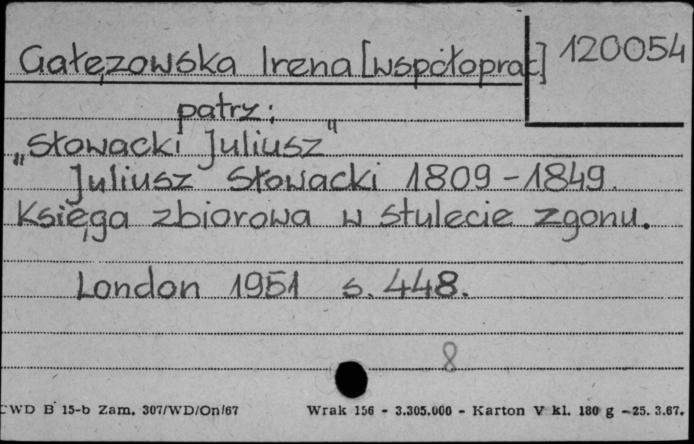 Gałęzowska Irena [współoprac] 120054
patrz:
„Słowacki Juliusz"
Juliusz Słowacki 1809-1849.
Księga zbiorowa w stulecie zgonu.
London 1951 s. 448.
8
CWD B 15-b Zam. 307/WD/On/67 Wrak 156 - 3.305.000 - Karton V kl. 180 g -25. 3.67.